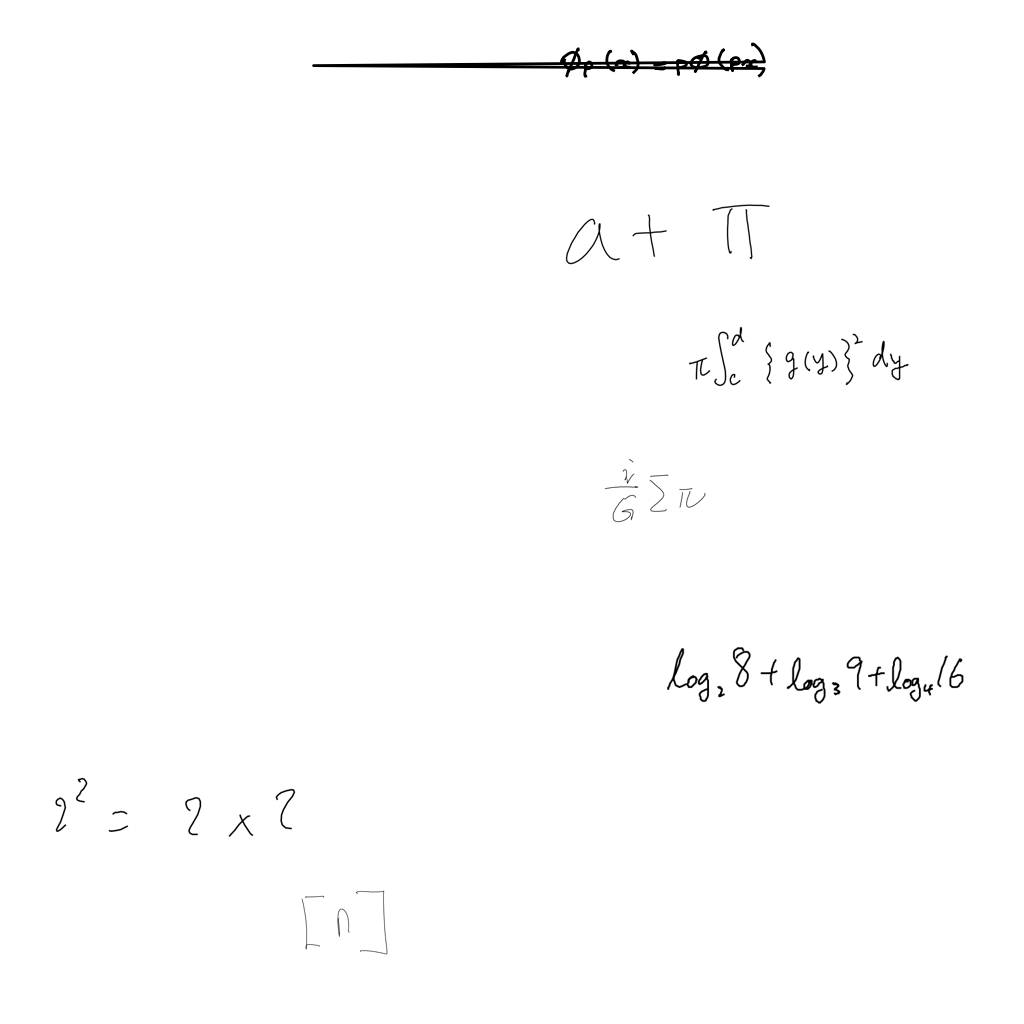 ϕₚ(x) = pϕ(px)
a + π
π∫_c^d {g(y)}² dy
i/G Σ π
log₂ 8 + log₃ 9 + log₄ 16
2² = 2 × 2
[n]